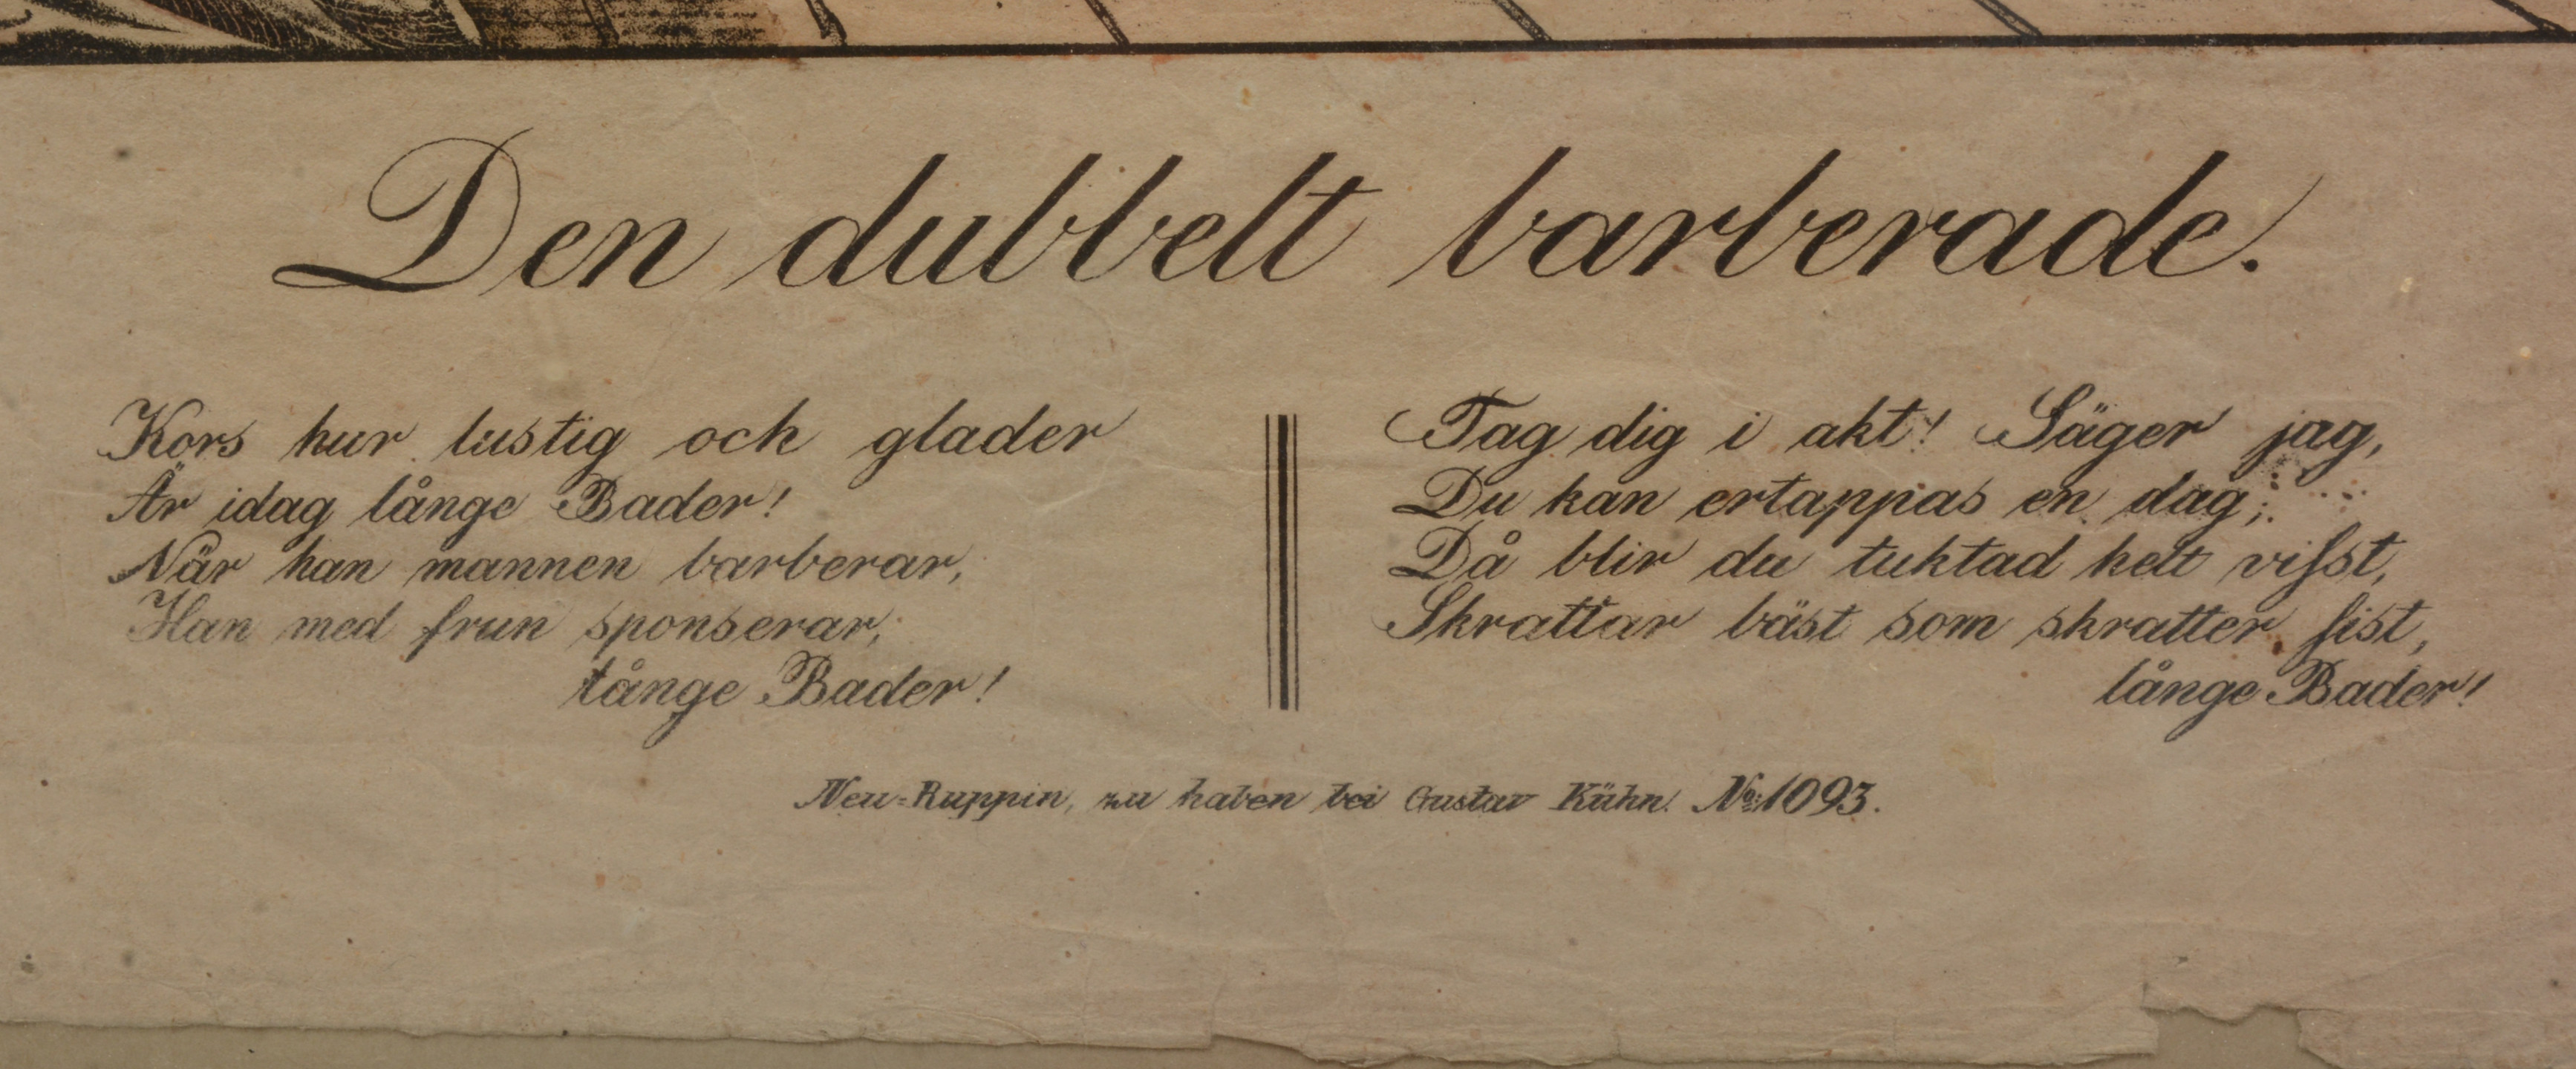 Den dubbelt barberade.
Kors hur lustig och glader
Är idag långe Bader!
När han mannen barberar,
Han med frun sponserar,
långe Bader!
Tag dig i akt! Säger jag,
Du kan ertappas en dag;
Då blir du tuktad helt viſst,
Skrattar bäst som skratter ſist,
långe Bader!
Neu=Ruppin, zu haben bei Gustav Kühn. No: 1093.